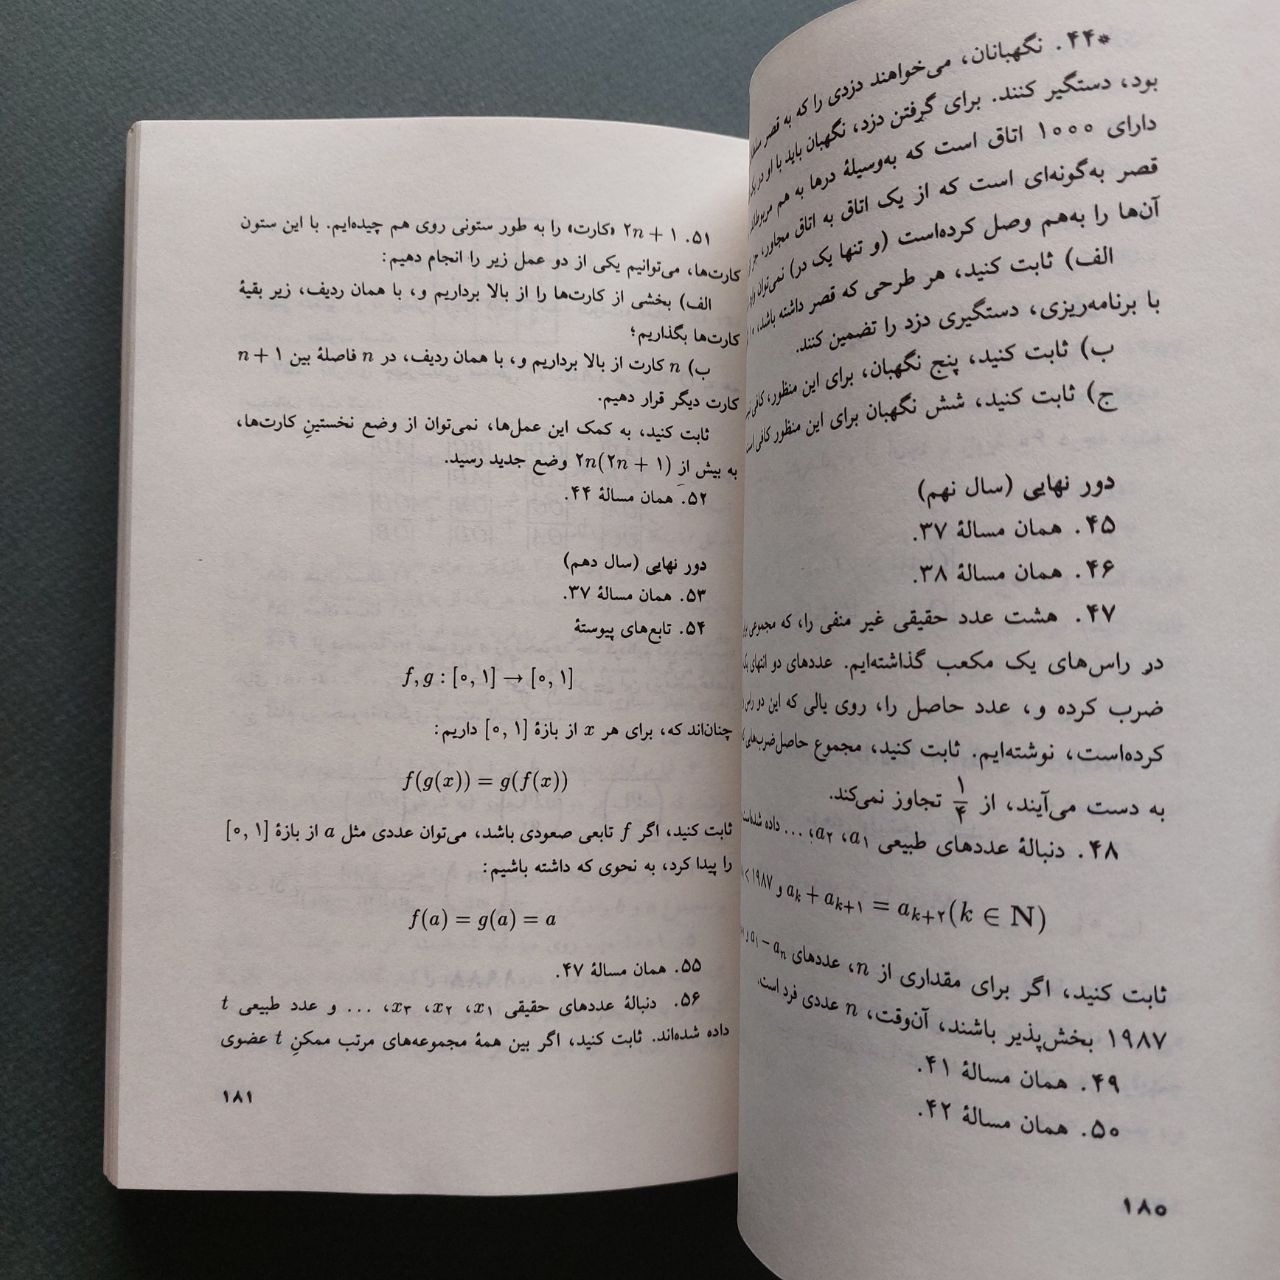 *۴۴. نگهبانان، می‌خواهند دزدی را که به قصر
بود، دستگیر کنند. برای گرفتن دزد، نگهبان باید با او در یک
دارای ۱۰۰۰ اتاق است که به‌وسیلهٔ درها به هم
قصر به‌گونه‌ای است که از یک اتاق به اتاق مجاور، جز
آن‌ها را به‌هم وصل کرده‌است (و تنها یک در) نمی‌توان
الف) ثابت کنید، هر طرحی که قصر داشته باشد،
با برنامه‌ریزی، دستگیری دزد را تضمین کنند.
ب) ثابت کنید، پنج نگهبان، برای این منظور، کافی
ج) ثابت کنید، شش نگهبان برای این منظور کافی
دور نهایی (سال نهم)
۴۵. همان مسالهٔ ۳۷.
۴۶. همان مسالهٔ ۳۸.
۴۷. هشت عدد حقیقی غیر منفی را، که مجموعی
در راس‌های یک مکعب گذاشته‌ایم. عددهای دو انتهای
ضرب کرده و، عدد حاصل را، روی یالی که این دو راس
کرده‌است، نوشته‌ایم. ثابت کنید، مجموع حاصل‌ضرب‌هایی
به دست می‌آیند، از ۱/۴ تجاوز نمی‌کند.
۴۸. دنبالهٔ عددهای طبیعی a۱، a۲، ... داده شده‌است
a_k + a_{k+۱} = a_{k+۲} (k ∈ N) و ۱۹۸۷ <
ثابت کنید، اگر برای مقداری از n، عددهای a۱ − a_n و
۱۹۸۷ بخش‌پذیر باشند، آن‌وقت، n عددی فرد است.
۴۹. همان مسالهٔ ۴۱.
۵۰. همان مسالهٔ ۴۲.
۱۸۰
۵۱. ۲n + ۱ «کارت» را به طور ستونی روی هم چیده‌ایم. با این ستون
کارت‌ها، می‌توانیم یکی از دو عمل زیر را انجام دهیم:
الف) بخشی از کارت‌ها را از بالا برداریم و، با همان ردیف، زیر بقیهٔ
کارت‌ها بگذاریم؛
ب) n کارت از بالا برداریم و، با همان ردیف، در n فاصلهٔ بین n + ۱
کارت دیگر قرار دهیم.
ثابت کنید، به کمک این عمل‌ها، نمی‌توان از وضع نخستینِ کارت‌ها،
به بیش از ۲n(۲n + ۱) وضع جدید رسید.
۵۲. همان مسالهٔ ۴۴.
دور نهایی (سال دهم)
۵۳. همان مسالهٔ ۳۷.
۵۴. تابع‌های پیوستهٔ
f, g : [۰, ۱] → [۰, ۱]
چنان‌اند که، برای هر x از بازهٔ [۰, ۱] داریم:
f(g(x)) = g(f(x))
ثابت کنید، اگر f تابعی صعودی باشد، می‌توان عددی مثل a از بازهٔ [۰, ۱]
را پیدا کرد، به نحوی که داشته باشیم:
f(a) = g(a) = a
۵۵. همان مسالهٔ ۴۷.
۵۶. دنبالهٔ عددهای حقیقی x۱، x۲، x۳، ... و عدد طبیعی t
داده شده‌اند. ثابت کنید، اگر بین همهٔ مجموعه‌های مرتب ممکنِ t عضوی
۱۸۱